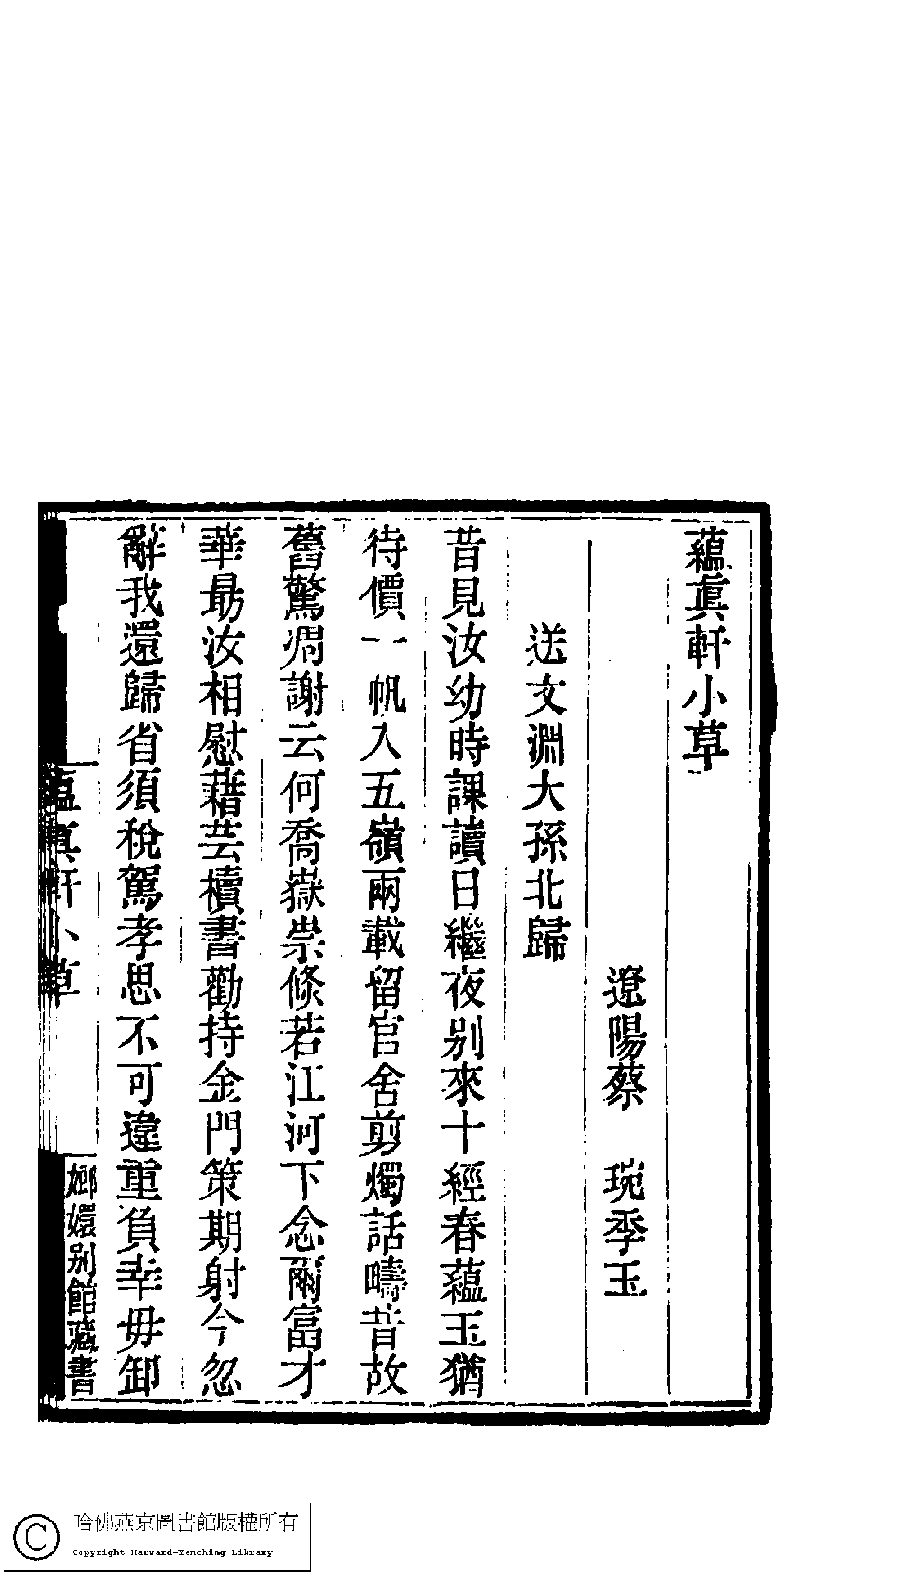 蘊真軒小草
遼陽蔡　琬季玉
送文淵大孫北歸
昔見汝幼時課讀日繼夜別來十經春蘊玉猶
待價一帆入五嶺兩載留官舍剪燭話疇昔故
舊驚凋謝云何喬嶽崇倏若江河下念爾富才
華最汝相慰藉芸櫝書勸持金門策期射今忽
辭我還歸省須稅駕孝思不可違重負幸毋卸
蘊真軒小草
嫏嬛別館藏書
哈佛燕京圖書館版權所有
Copyright Harvard-Yenching Library